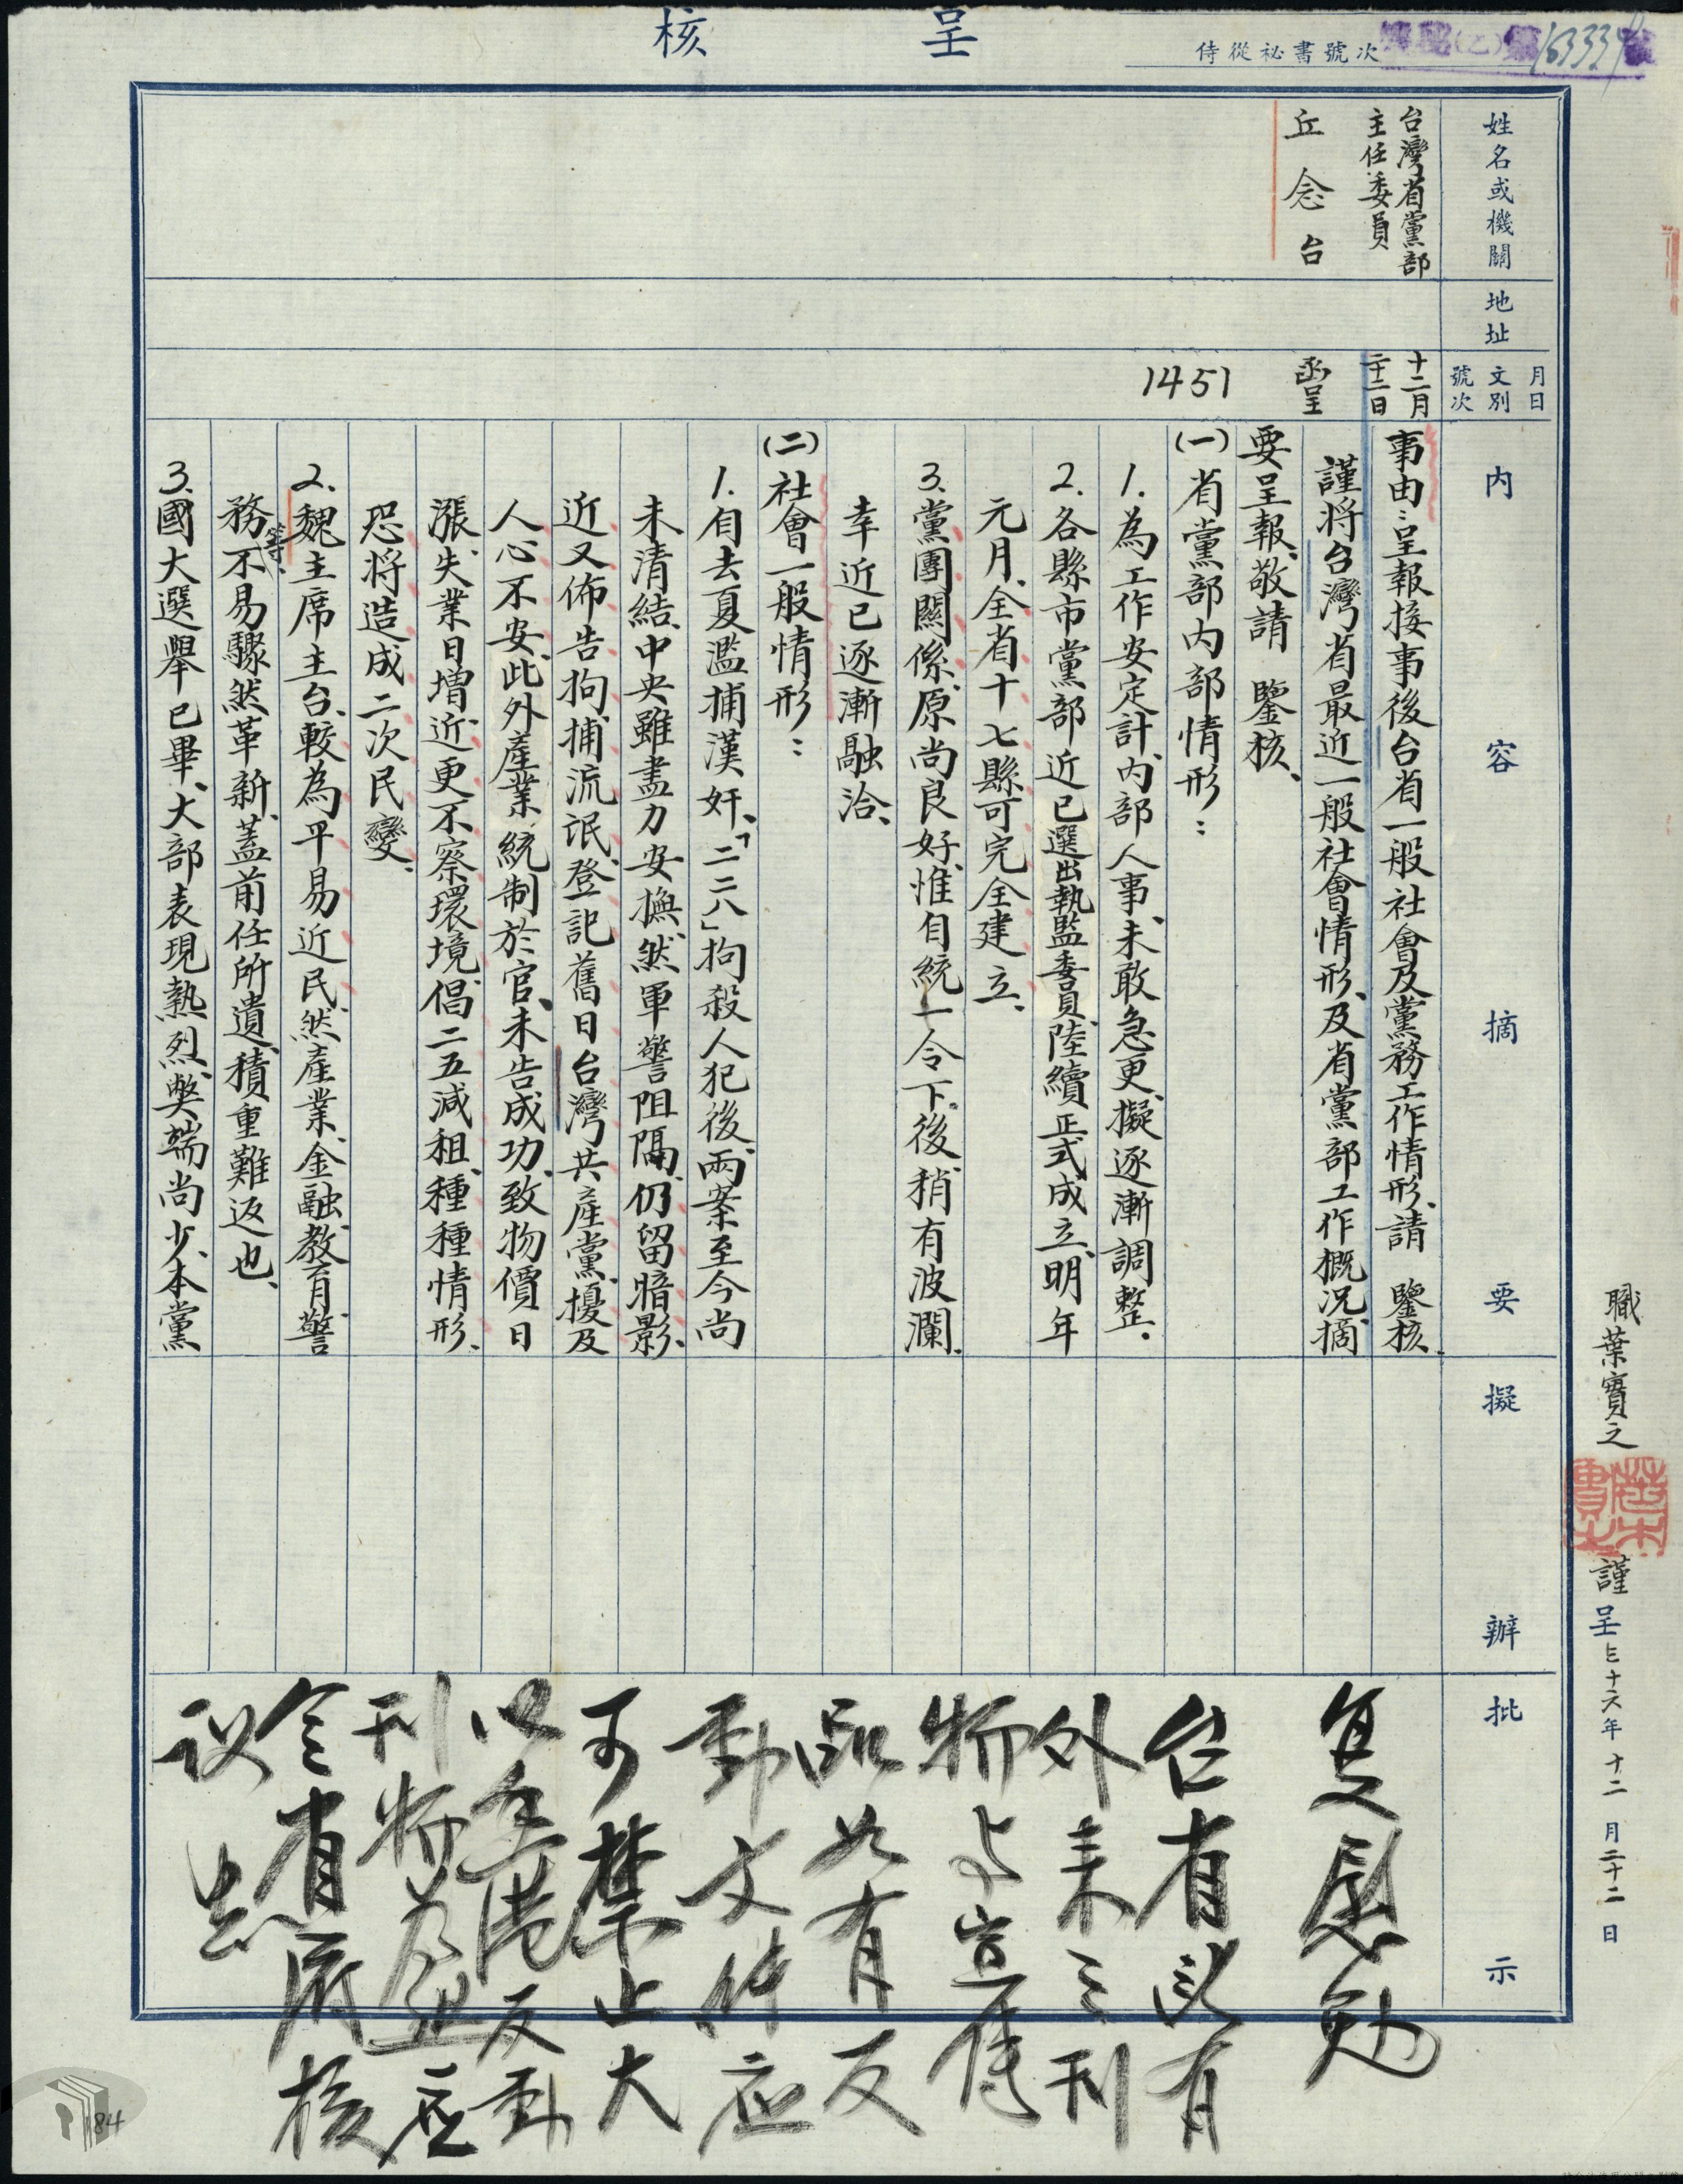 呈核
侍從祕書號次
16333
職葉實之謹呈卅六年十二月二十二日
姓名或機關
地址
月日
文別
號次
內容摘要
擬辦
批示
台灣省黨部
主任委員
丘念台
十二月
二十二日
函呈
1451
事由：呈報接事後台省一般社會及黨務工作情形、請　鑒核、
謹將台灣省最近一般社會情形、及省黨部工作概況、摘
要呈報、敬請　鑒核、
(一)省黨部內部情形：
1.為工作安定計、內部人事、未敢急更、擬逐漸調整.
2.各縣市黨部近已選出執監委員、陸續正式成立、明年
元月、全省十七縣可完全建立、
3.黨團關係、原尚良好、惟自統一令下後、稍有波瀾、
幸近已逐漸融洽、
(二)社會一般情形：
1.自去夏濫捕漢奸、「二二八」拘殺人犯後、兩案至今尚
未清結、中央雖盡力安撫、然軍警阻隔、仍留暗影、
近又佈告拘捕流氓、登記舊日台灣共產黨、擾及
人心不安、此外產業統制於官、未告成功、致物價日
漲、失業日增、近更不察環境、倡二五減租、種種情形、
恐將造成二次民變、
2.魏主席主台、較為平易近民、然產業、金融、教育、警
務等、不易驟然革新、蓋前任所遺、積重難返也、
3.國大選舉已畢、大部表現熱烈、弊端尚少、本黨
复慰勉
台省以有
外來之刊
物与宣傳
品如有反
動文件应
可禁止大
以香港反動
刊物為甚应
令省府核
议
84